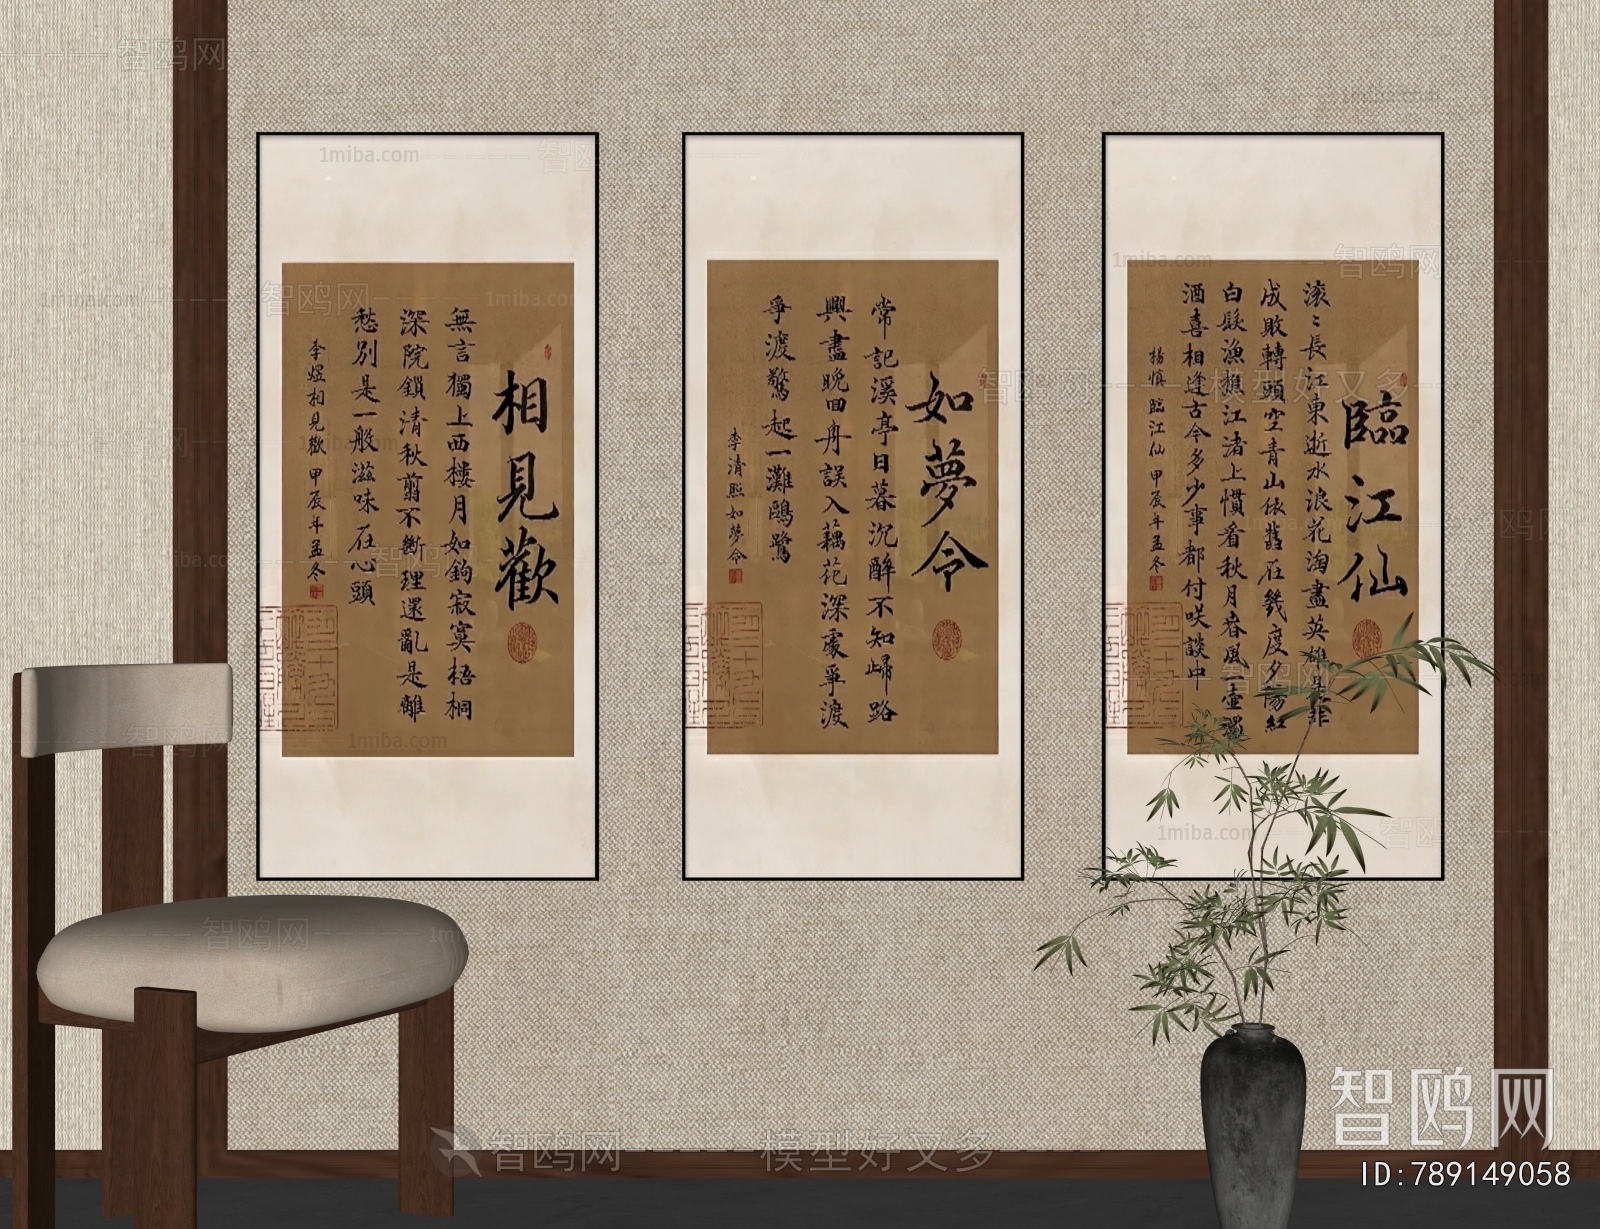 相見歡
無言獨上西樓月如鉤寂寞梧桐
深院鎖清秋翦不斷理還亂是離
愁別是一般滋味在心頭
李煜相見歡甲辰年孟冬
如夢令
常記溪亭日暮沉醉不知歸路
興盡晚回舟誤入藕花深處爭渡
爭渡驚起一灘鷗鷺
李清照如夢令
臨江仙
滾滾長江東逝水浪花淘盡英雄是非
成敗轉頭空青山依舊在幾度夕陽紅
白髮漁樵江渚上慣看秋月春風一壺濁
酒喜相逢古今多少事都付笑談中
楊慎臨江仙甲辰年孟冬
1miba.com
智鸥网
模型好又多
智鸥网
ID:789149058